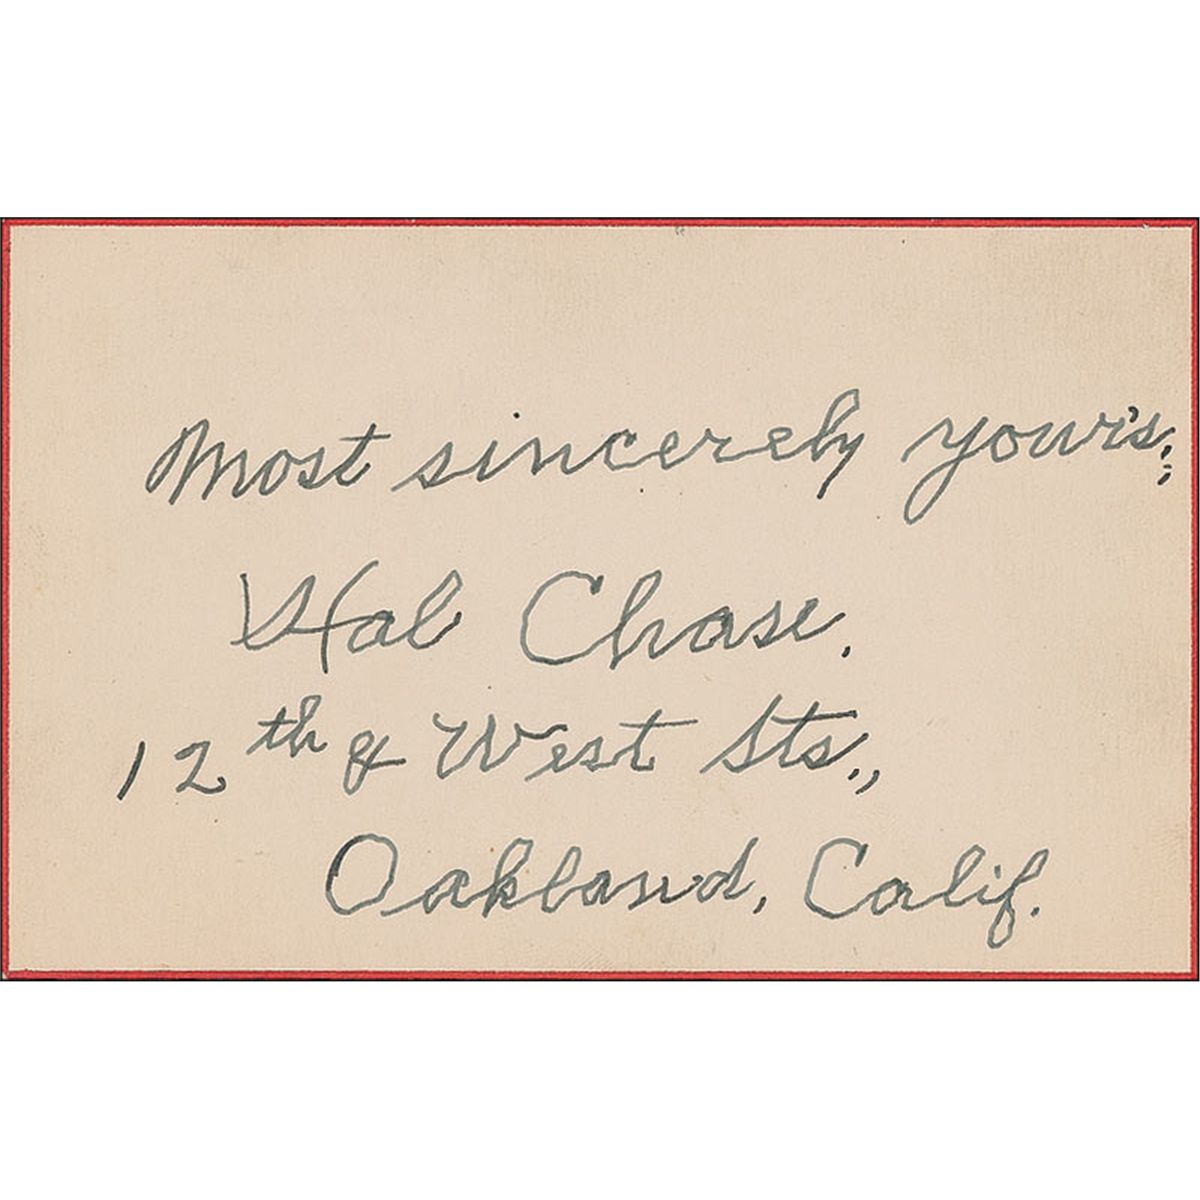 Most sincerely your's,;
Hal Chase.
12th & West Sts.,,
Oakland, Calif.